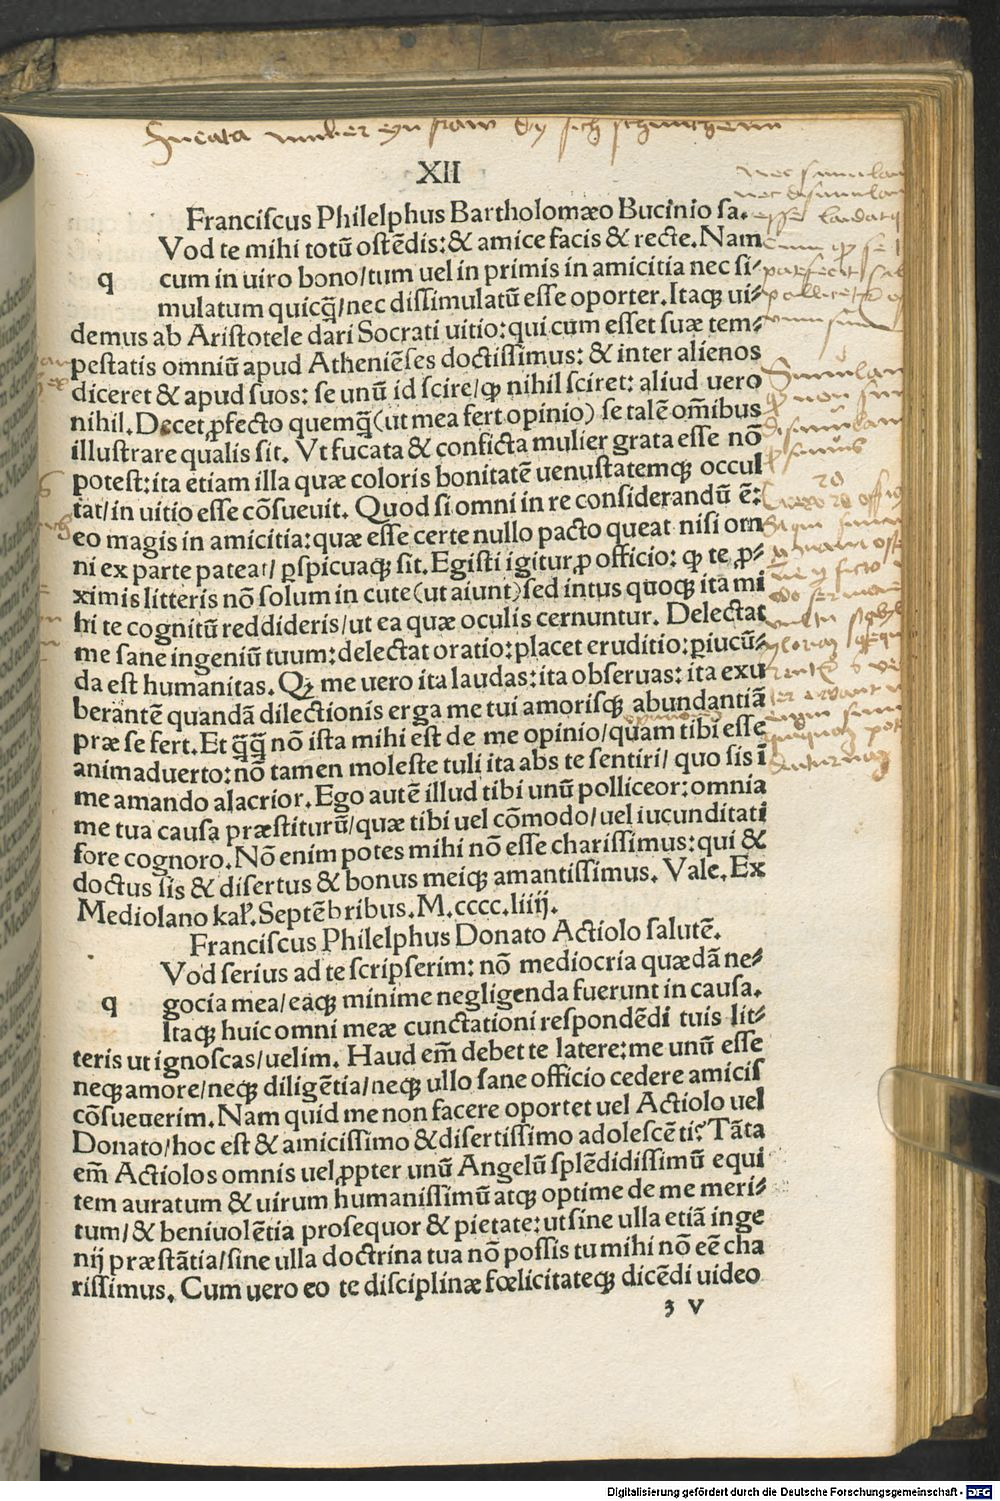 XII
Franciſcus Philelphus Bartholomæo Bucinio ſa.
Vod te mihi totū oſtēdis:& amice facis & recte. Nam
q cum in uiro bono/tum uel in primis in amicitia nec ſi⸗
mulatum quicq̄/nec diſſimulatū eſſe oporter. Itaqꝫ ui⸗
demus ab Ariſtotele dari Socrati uitio: qui cum eſſet ſuæ tem⸗
peſtatis omniū apud Atheniēſes doctiſſimus: & inter alienos
diceret & apud ſuos: ſe unū id ſcire/ꝙ nihil ſciret: aliud uero
nihil. Decet ꝓfecto quemq̄(ut mea fert opinio) ſe talē om̄ibus
illuſtrare qualis ſit. Vt fucata & conficta mulier grata eſſe nō
poteſt: ita etiam illa quæ coloris bonitatē uenuſtatemqꝫ occul
tat/in uitio eſſe cōſueuit. Quod ſi omni in re conſiderandū ē:
eo magis in amicitia: quæ eſſe certe nullo pacto queat niſi om
ni ex parte pateat/ ꝑſpicuaqꝫ ſit. Egiſti igitur ꝓ officio: ꝙ te ꝓ⸗
ximis litteris nō ſolum in cute(ut aiunt)ſed intus quoqꝫ ita mi
hi te cognitū reddideris/ut ea quæ oculis cernuntur. Delectat
me ſane ingeniū tuum: delectat oratio: placet eruditio: ꝑiucū⸗
da eſt humanitas. Qꝫ me uero ita laudas: ita obſeruas: ita exu
berantē quandā dilectionis erga me tui amoriſqꝫ abundantiā
præ ſe fert. Et q̄q̄ nō iſta mihi eſt de me opinio/quam tibi eſſe
animaduerto: nō tamen moleſte tuli ita abs te ſentiri/ quo ſis ī
me amando alacrior. Ego autē illud tibi unū polliceor: omnia
me tua cauſa præſtiturū/quæ tibi uel cōmodo/uel iucunditati
fore cognoro. Nō enim potes mihi nō eſſe chariſſimus: qui &
doctus ſis & diſertus & bonus meiqꝫ amantiſſimus. Vale. Ex
Mediolano kaľ. Septēbribus. M.cccc.liiij.
Franciſcus Philelphus Donato Actiolo ſalutē.
Vod ſerius ad te ſcripſerim: nō mediocria quædā ne⸗
q gocia mea/eaqꝫ minime negligenda fuerunt in cauſa.
Itaqꝫ huic omni meæ cunctationi reſpondēdi tuis lit⸗
teris ut ignoſcas/uelim. Haud em̄ debet te latere: me unū eſſe
neqꝫ amore/neqꝫ diligētia/neqꝫ ullo ſane officio cedere amicis
cōſueuerim. Nam quid me non facere oportet uel Actiolo uel
Donato/hoc eſt & amiciſſimo & diſertiſſimo adoleſcēti? Tāta
em̄ Actiolos omnis uel ꝓpter unū Angelū ſplēdidiſſimū equi
tem auratum & uirum humaniſſimū atqꝫ optime de me meri⸗
tum/& beniuolētia proſequor & pietate: ut ſine ulla etiā inge
nij præſtātia/ſine ulla doctrina tua nō poſſis tu mihi nō eē cha
riſſimus. Cum uero eo te diſciplinæ fœlicitateqꝫ dicēdi uideo
3 v
Digitalisierung gefördert durch die Deutsche Forschungsgemeinschaft - DFG